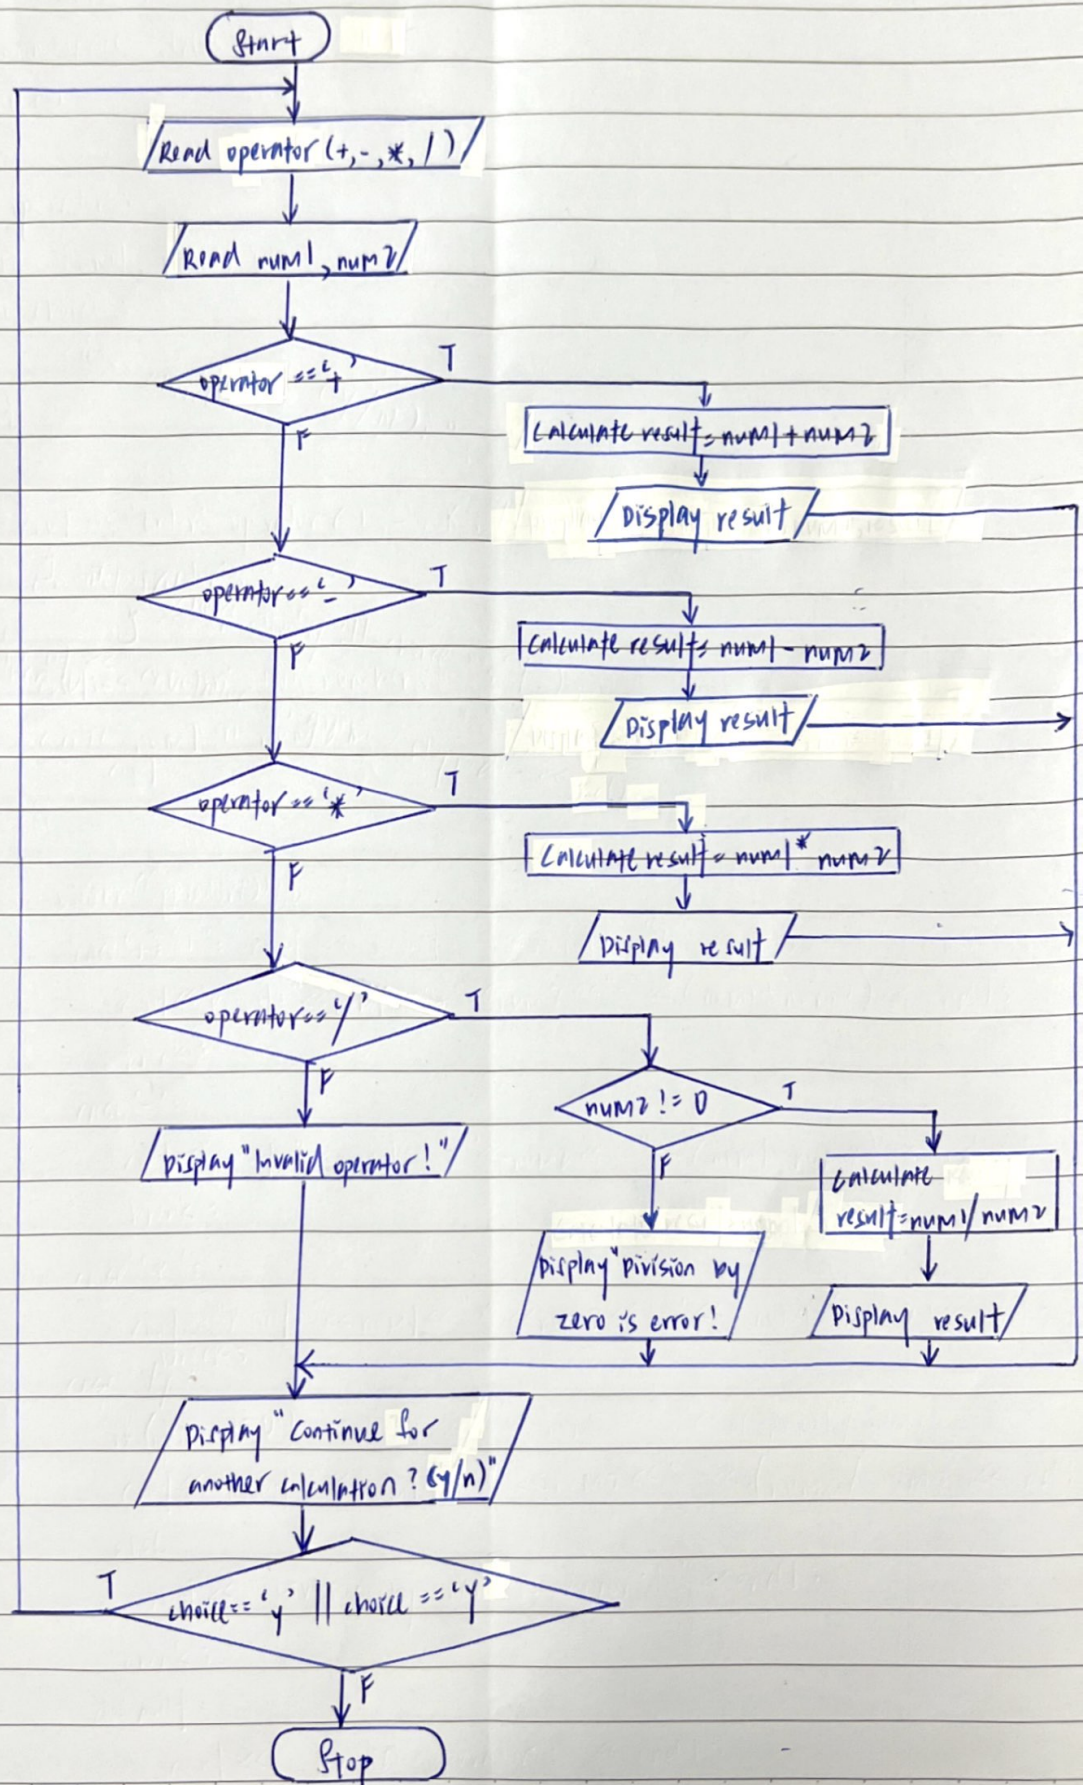 Start
Read operator (+,-,*,/)
Read num1, num2
operator == '+'
T
F
Calculate result = num1 + num2
Display result
operator == '-'
T
F
Calculate result = num1 - num2
Display result
operator == '*'
T
F
Calculate result = num1 * num2
Display result
operator == '/'
T
F
num2 != 0
T
F
Display "Invalid operator!"
Calculate
result = num1 / num2
Display "Division by
zero is error!
Display result
Display "Continue for
another calculation? (y/n)"
T
choice == 'y' || choice == 'Y'
F
Stop